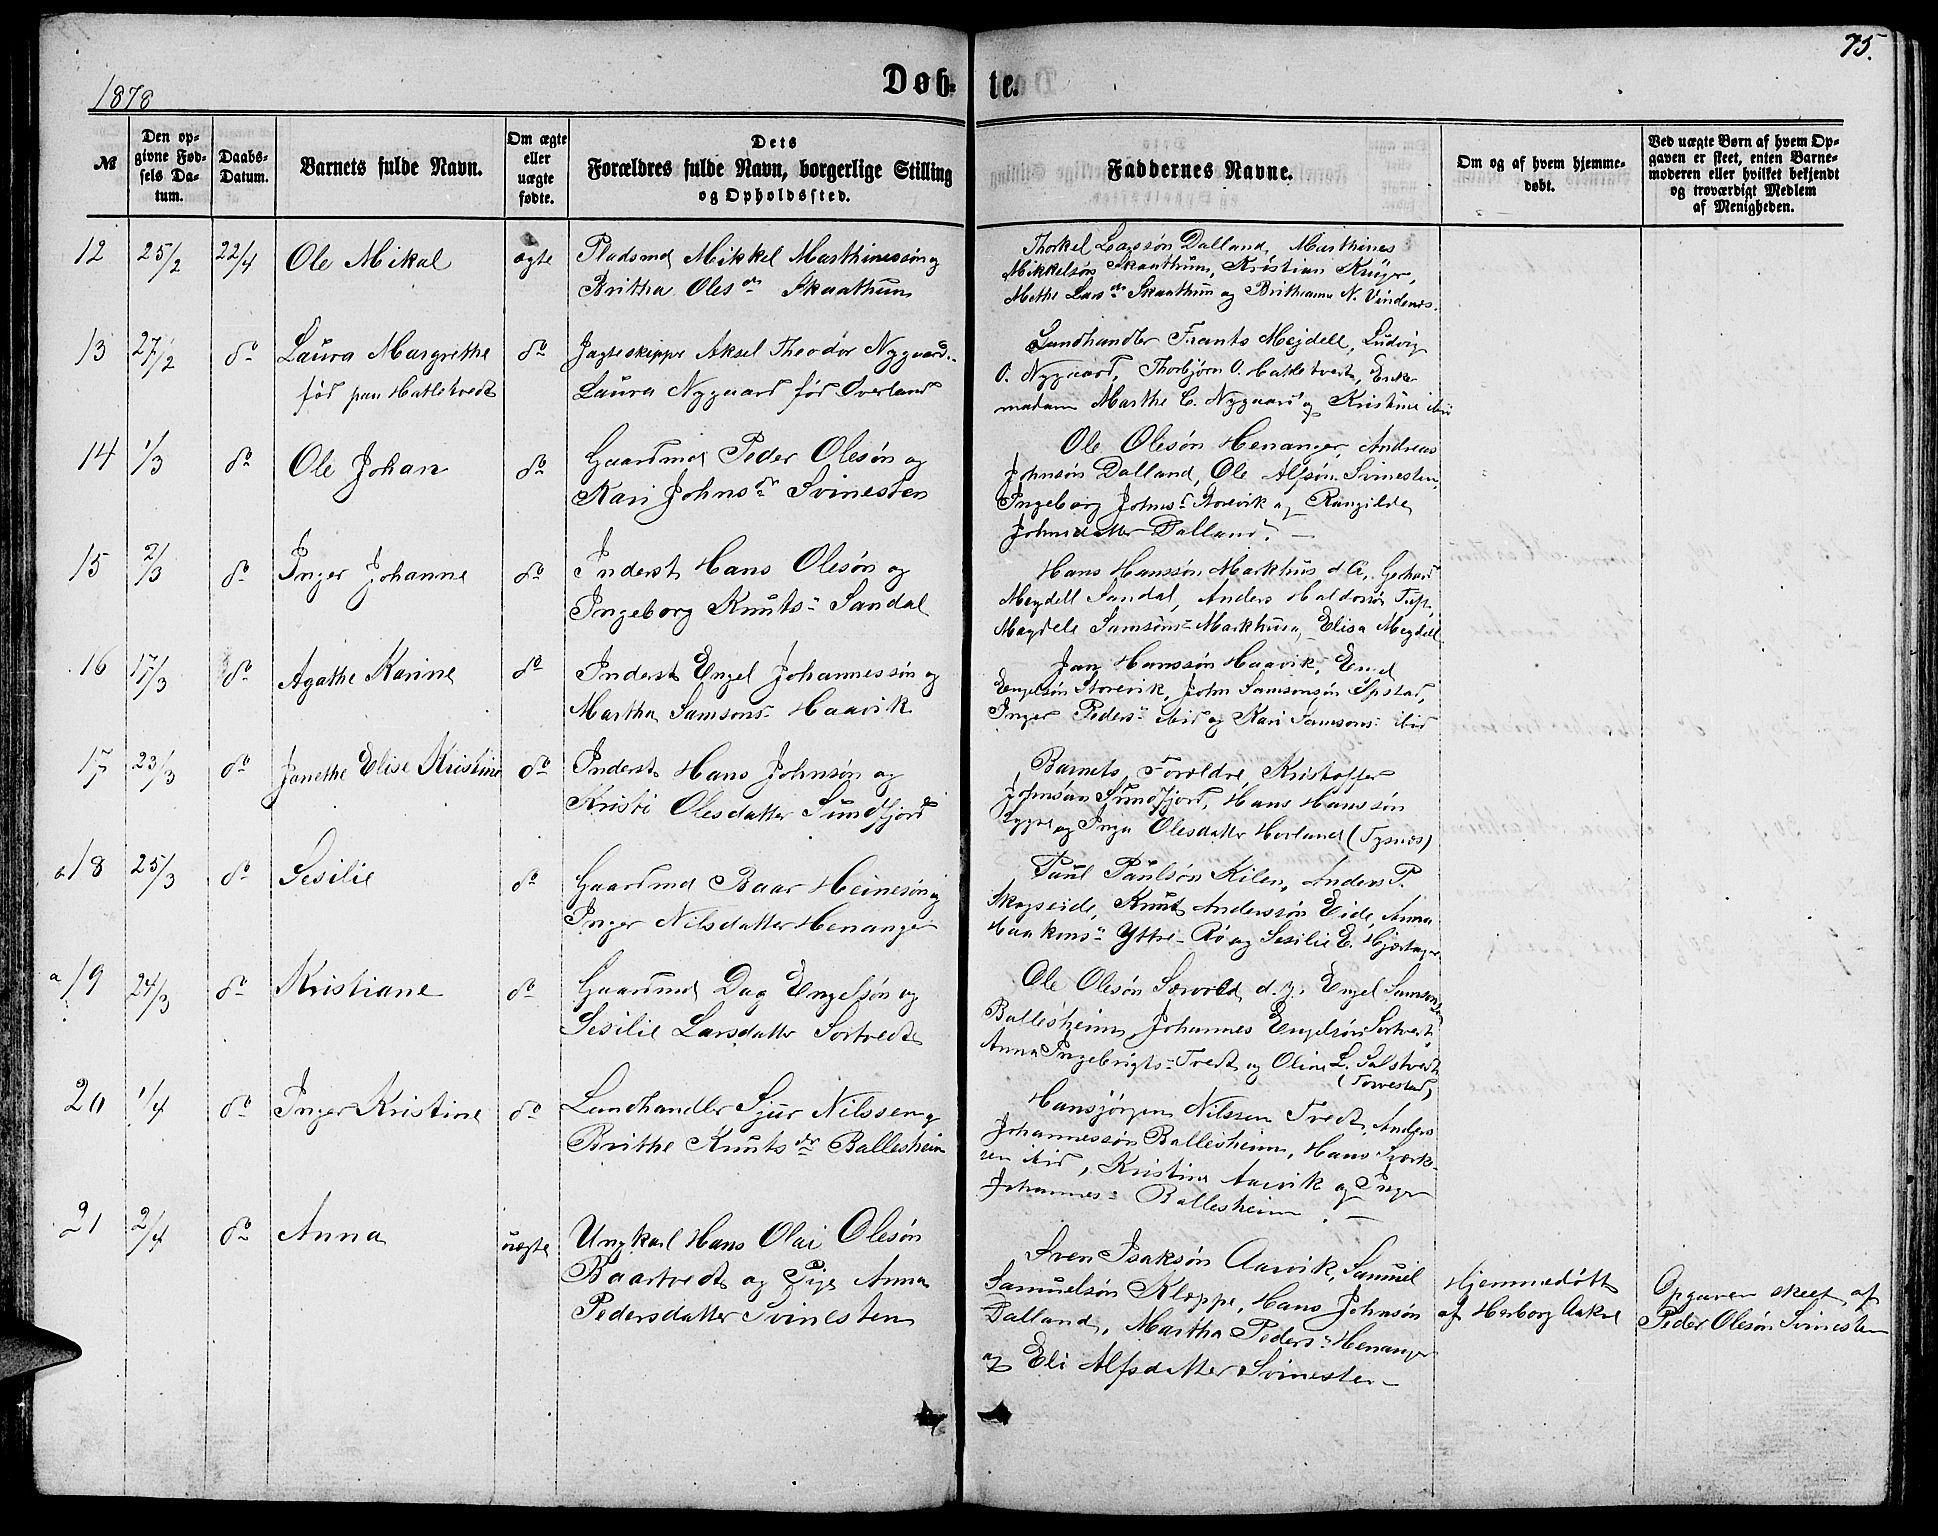 75.
1878
Døb-
te.
№
Den op-
givne Fød-
sels Da-
tum.
Daabs-
Datum.
Barnets fulde Navn.
Om ægte
eller
uægte
fødte.
Dets
Forældres fulde Navn, borgerlige Stilling
og Opholdssted.
Faddernes Navne.
Om og af hvem hjemme-
døbt.
Ved uægte Børn af hvem Op-
gaven er skeet, enten Barne-
moderen eller hvilket bekjendt
og troværdigt Medlem
af Menigheden.
12 25/2 22/4 Ole Mikal ægte Pladsmd Mikkel Marthinessøn og
Britha Olesdr Skaathun
Thorkel Larssøn Dalland, Marthines
Mikkelsøn Skaathun, Kristian Krüger,
Methe Larsdr Skaathun og Britheanna N. Vindenes.
13 27/2 do Laura Margrethe do Jagteskippr Aksel Theodor Nygaard..
fød paa Hatletvedt Laura Nygaard fød Overland
Landhandler Frants Mejdell, Ludvig
O. Nygaard, Thorbjørn O. Hatletvedt, Enke-
madam Marthe C. Nygaard og Kristine ibid
14 1/3 do Ole Johan do Gaardmd Peder Olesøn og
Kari Johnsdr Svinesten
Ole Olesøn Henanger, Andreas
Johnsøn Dalland, Ole Alfsøn Svinesten,
Ingeborg Johnsd Storevik og Rangilde
Johnsdatter Dalland. —
15 2/3 do Inger Johanne do Inderst Hans Olesøn og
Ingeborg Knuts- Sandal
Hans Hanssøn Markhus d. Æ, Gerhard
Meydell Sandal, Anders Haldorsøn Tufte,
Magdele Samsøns- Markhus, Elisa Meydell
16 17/3 do Agathe Karine do Inderst Engel Johannessøn og
Martha Samsons- Haavik
Jan Hanssøn Haavik, Engel
Engelsøn Storevik, John Samsonsøn Ipstad,
Inger Peders- ibid og Kari Samsons- ibid
17 23/3 do Janethe Elise Kristine do Inderst Hans Johnsøn og
Kristi Olesdatter Sundfjord
Barnets Forældre, Kristoffer
Johnsøn Sundfjord, Hans Hanssøn
Rype og Inga Olesdatter Horland (Tysnes)
18 25/3 do Sesilie do Gaardmd Baar Heinesøn og
Inger Nilsdatter Henanger
Paul Paulsøn Kilen, Anders P.
Skogseide, Knut Anderssøn Eide, Anna
Haakons- Yttre-Rø og Sesilie E. Hjortager
19 24/3 do Kristiane do Gaardmd Dag Engelsøn og
Sesilie Larsdatter Sortvedt
Ole Olesøn Sævold, d. y. Engel Samsonsøn
Ballesheim, Johannes Engelsøn Sortvedt,
Anna Ingebrigts- Tvedt og Oline L. Solstvedt
(Torvestad)
20 1/4 do Inger Kristine do Landhandler Sjur Nilssen og
Brithe Knutsdr Ballesheim
Hansjørgen Nilssen Tvedt, Anders
Johannessøn Ballesheim, Hans Tværk-
sen ibid, Kristine Aarvik og Inger
Johannes- Ballesheim. —
21 2/4 do Anna uægte Ungkarl Hans Olai Olesøn
Baartvedt og Pige Anna
Pedersdatter Svinesten
Sven Isaksøn Aarvik, Samuel
Samuelsøn Kleppe, Hans Johnsøn
Dalland, Martha Peders- Henanger
og Eli Alfsdatter Svinesten —
Hjemmedøbt
af Herborg Aakre
Opgaven skeet af
Peder Olesøn Svinesten